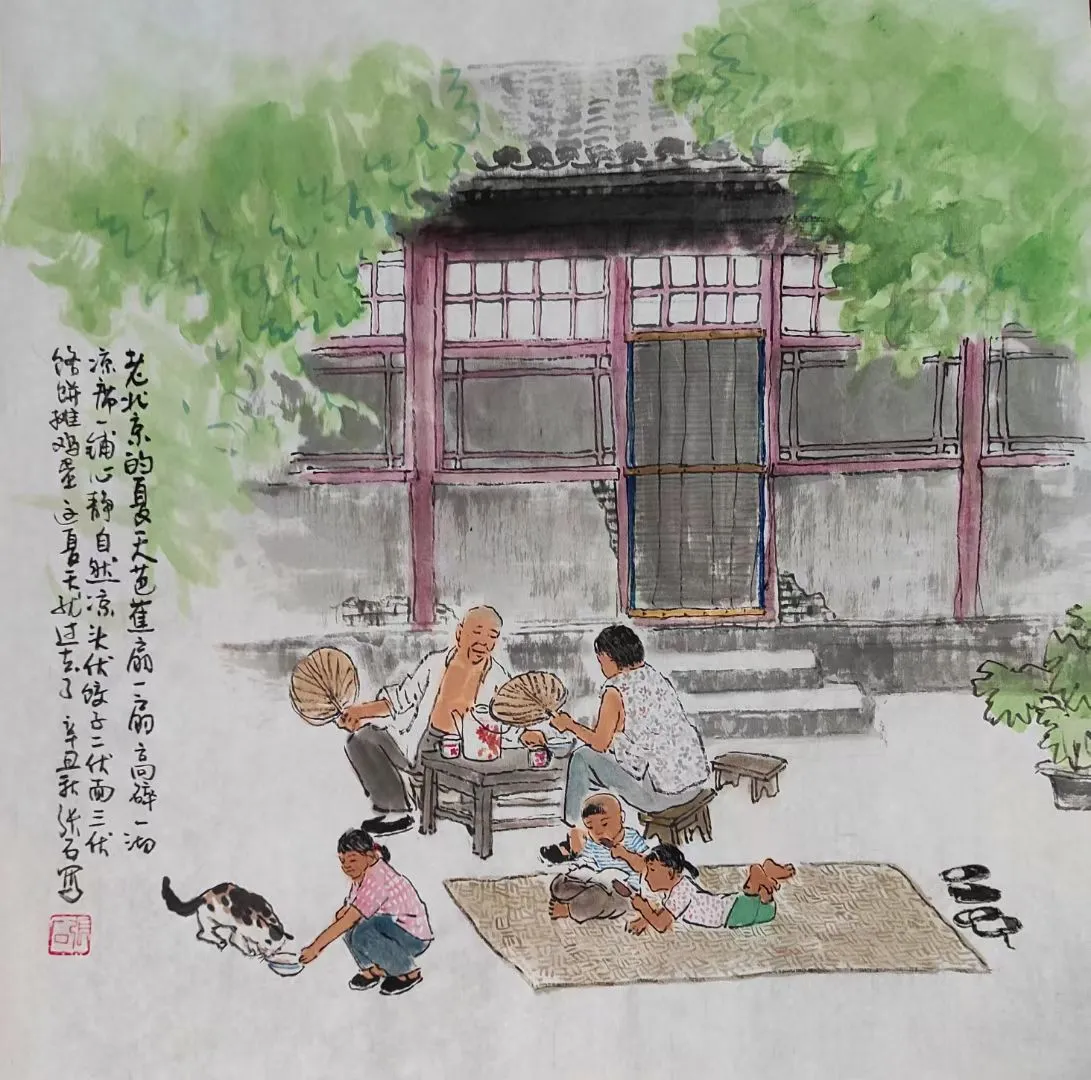 老北京的夏天芭蕉扇一扇高碎一沏
凉席一铺心静自然凉头伏饺子二伏面三伏
烙饼摊鸡蛋这夏天就过去了 辛丑秋张石写
張石